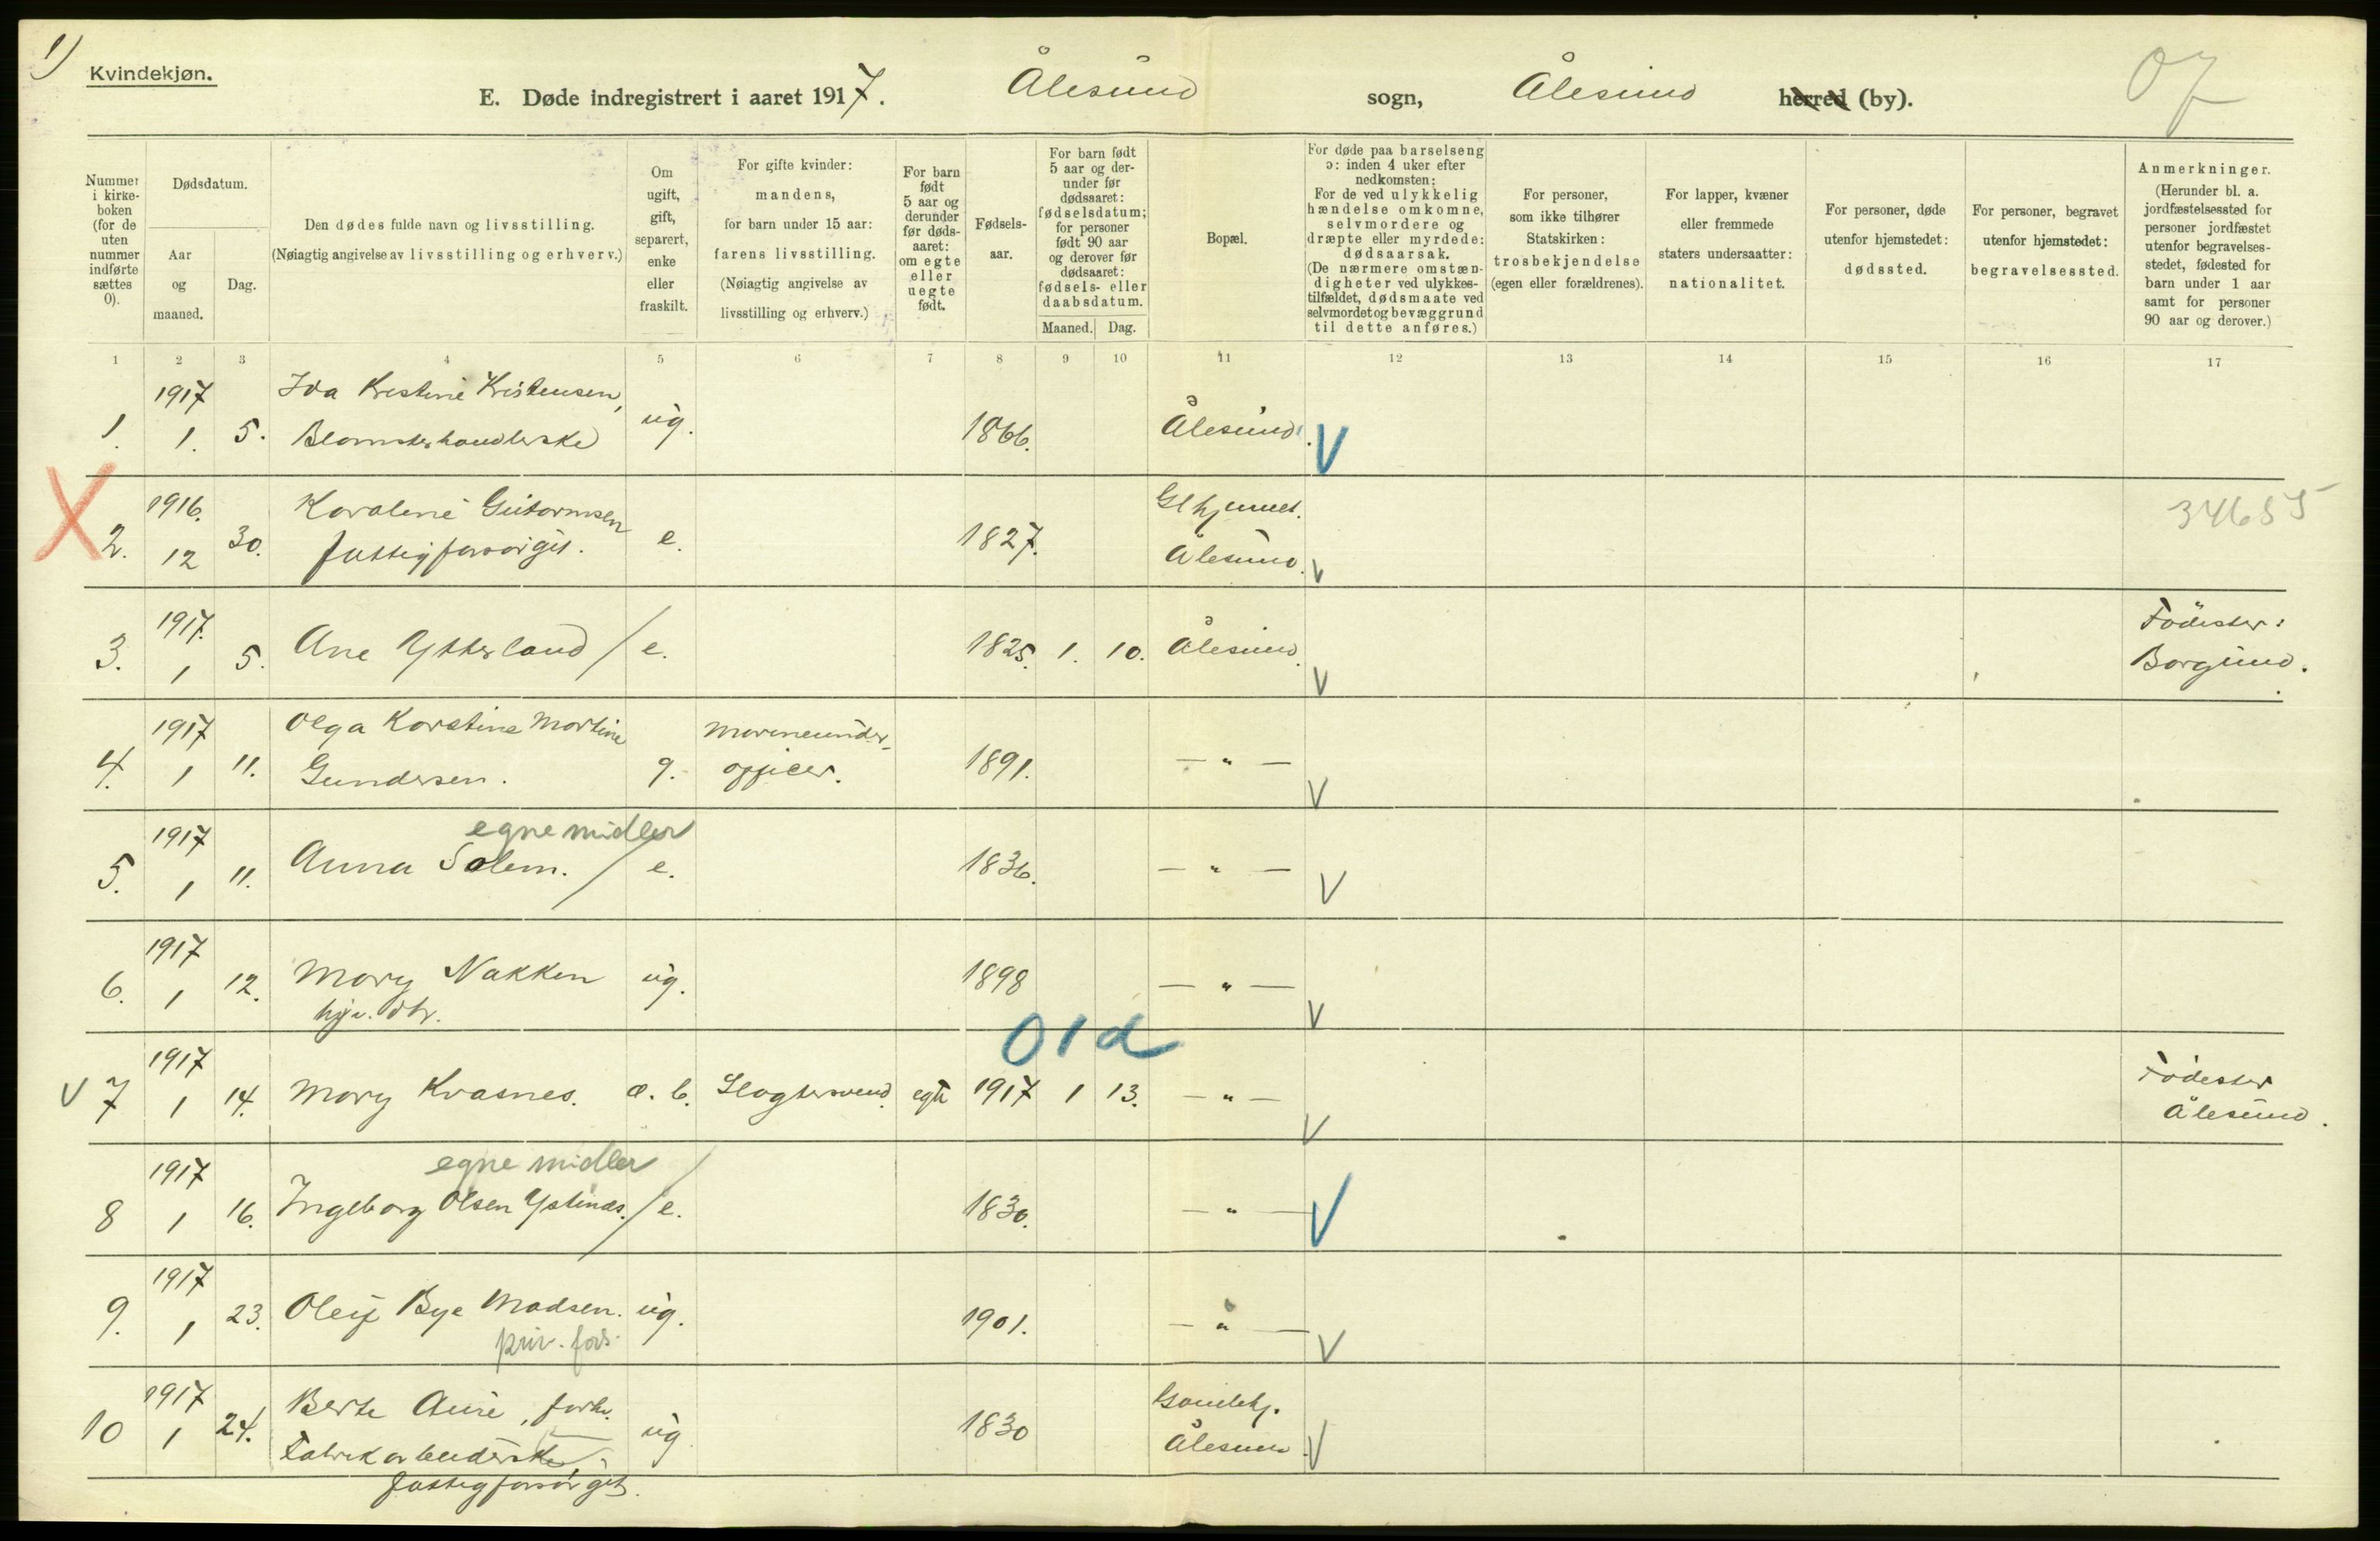 1)
Kvindekjøn.
E. Døde indregistrert i aaret 1917. Ålesund sogn, Ålesund herred (by).
07
Nummer i kirkeboken (for de uten nummer indførte sættes 0).
Dødsdatum.
Aar og maaned.
Dag.
Den dødes fulde navn og livsstilling.
(Nøiagtig angivelse av livsstilling og erhverv.)
Om ugift, gift, separert, enke eller fraskilt.
For gifte kvinder: mandens, for barn under 15 aar: farens livsstilling. (Nøiagtig angivelse av livsstilling og erhverv.)
For barn født 5 aar og derunder før dødsaaret: om egte eller uegte født.
Fødselsaar.
For barn født 5 aar og derunder før dødsaaret: fødselsdatum; for personer født 90 aar og derover før dødsaaret: fødsels- eller daabsdatum.
Maaned. Dag.
Bopæl.
For døde paa barselseng ɔ: inden 4 uker efter nedkomsten: For de ved ulykkelig hændelse omkomne, selvmordere og dræpte eller myrdede: dødsaarsak. (De nærmere omstændigheter ved ulykkestilfældet, dødsmaate ved selvmordet og bevæggrund til dette anføres.)
For personer, som ikke tilhører Statskirken: trosbekjendelse (egen eller forældrenes).
For lapper, kvæner eller fremmede staters undersaatter: nationalitet.
For personer, døde utenfor hjemstedet: dødssted.
For personer, begravet utenfor hjemstedet: begravelsessted.
Anmerkninger. (Herunder bl. a. jordfæstelsessted for personer jordfæstet utenfor begravelsesstedet, fødested for barn under 1 aar samt for personer 90 aar og derover.)
1 2 3 4 5 6 7 8 9 10 11 12 13 14 15 16 17
1917 Ida Kristine Kristensen,
1. 1. 5. Blomsterhandlerske ug. 1866. Ålesund. V
X 1916. Karoline Gutormsen Glhjemmet. 34655
2. 12 30. fattigforsørget. e. 1827. Ålesund. V
1917. Födester:
3. 1 5. Ane Ytterland / e. 1825. 1. 10. Ålesund. V Borgund.
1917 Olga Karstine Martine Marineunder-
4. 1 11. Gundersen. g. officer. 1891. — " — V
1917 egne midler
5. 1 11. Anna Solem. / e. 1836. — " — V
1917
6. 1 12. Mary Nakken ug. 1898 — " — V
hjv. dtr.
01d
1917 Födester
V 7 1 14. Mary Kvasnes. a. b. Slagtersvend. egte 1917 1 13. — " — V Ålesund.
1917 egne midler
8 1 16. Ingeborg Olsen Ystenæs. / e. 1830. — " — V
1917
9. 1 23. Oleif Bye Madsen. ug. 1901. — " — V
priv. fors.
1917 Berte Aure, forhv. Gamlehj.
10 1 24. Fabrikarbeiderske, ug 1830 Ålesund V
fattigforsørget.